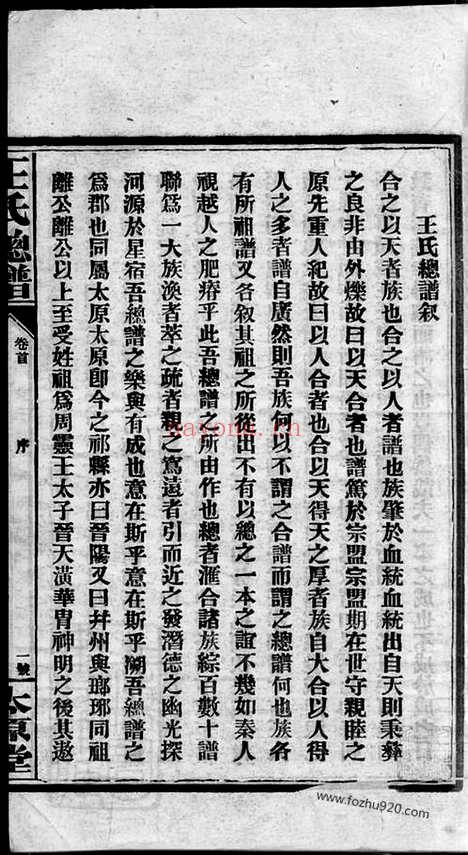 王氏總譜叙
合之以天者族也合之以人者譜也族肇於血統血統出自天則秉彝
之良非由外爍故曰以天合者也譜篤於宗盟宗盟期在世守親睦之
原先重人紀故曰以人合者也合以天得天之厚者族自大合以人得
人之多者譜自廣然則吾族何以不謂之合譜而謂之總譜何也族各
有所祖譜又各叙其祖之所從出不有以總之一本之誼不幾如秦人
視越人之肥瘠乎此吾總譜之所由作也總者滙合諸族綜百數十譜
聯爲一大族渙者萃之疏者親之寫遠者引而近之發潛德之幽光探
河源於星宿吾總譜之樂與有成也意在斯乎意在斯乎溯吾總譜之
爲郡也同屬太原太原卽今之祁縣亦曰晉陽又曰幷州與瑯琊同祖
離公離公以上至受姓祖爲周靈王太子晉天潢華胄神明之後其遂
王氏總譜
卷首
序
一號
太原堂
nayona.cn
www.fozhu920.com